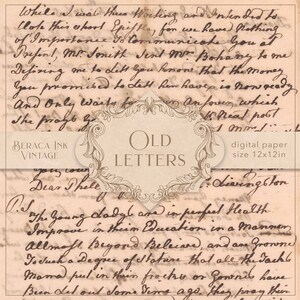 While I was thus Writing and Intended to
Close this short Epistle, for we have Nothing
of Importance To Communicate you at
Present, Mr. Smith Sent Mr. to me
Desiring me to Let You know that the Money
You promised to Lett him have is Now ready
And Only Waits for an Answer, which
She prays
OLD
LETTERS
BERACA INK
VINTAGE
digital paper
size 12x12in
Dear
Livingston
P.S.
The Young Ladys are in perfect Health
Improve in their Education in a Manner
Allmost Beyond Beleive, and are Growne
To Such a degree of Stature that all the Tucks
Mama put in their frocks or Gownes have
Been Let out Some Time ago. They pray their